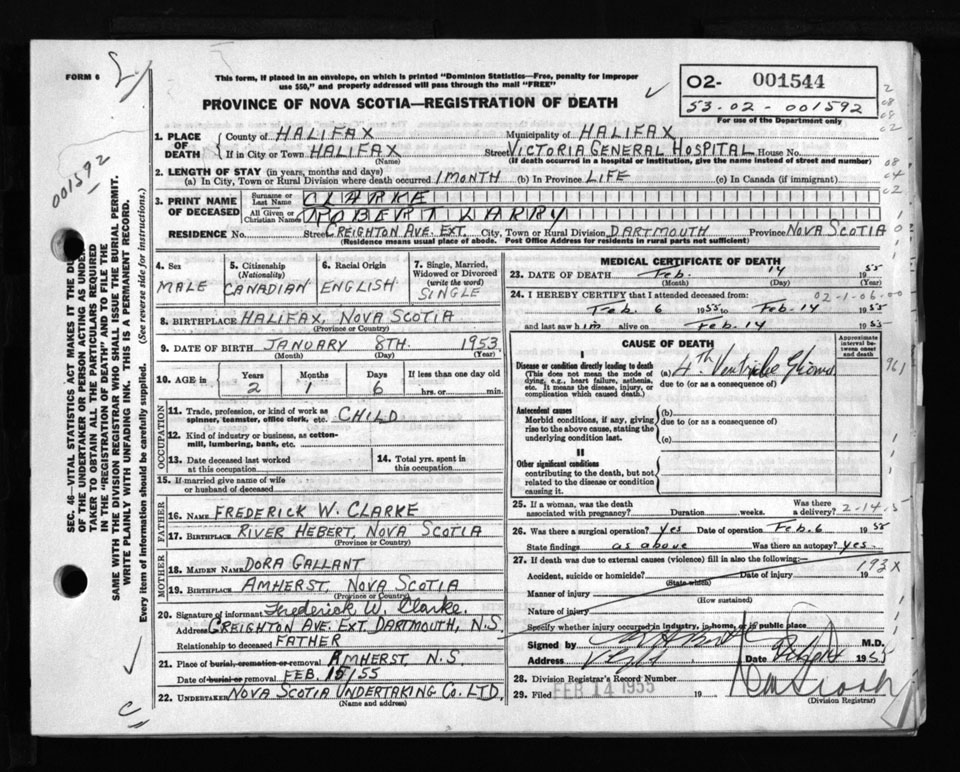 FORM 6
This form, if placed in an envelope, on which is printed "Dominion Statistics—Free, penalty for improper
use $50," and properly addressed will pass through the mail "FREE"
PROVINCE OF NOVA SCOTIA—REGISTRATION OF DEATH
02- 001544
53-02-001592
For use of the Department only
001592
SEC. 46—VITAL STATISTICS ACT MAKES IT THE DU
OF THE UNDERTAKER OR PERSON ACTING AS UNDER
TAKER TO OBTAIN ALL THE PARTICULARS REQUIRED
IN THE "REGISTRATION OF DEATH" AND TO FILE THE
SAME WITH THE DIVISION REGISTRAR WHO SHALL ISSUE THE BURIAL PERMIT.
WRITE PLAINLY WITH UNFADING INK. THIS IS A PERMANENT RECORD.
Every item of information should be carefully supplied. (See reverse side for instructions.)
1. PLACE OF DEATH County of HALIFAX Municipality of HALIFAX
If in City or Town HALIFAX Street VICTORIA GENERAL HOSPITAL House No.
(Name) (If death occurred in a hospital or institution, give the name instead of street and number)
2. LENGTH OF STAY (in years, months and days)
(a) In City, Town or Rural Division where death occurred 1 MONTH (b) In Province LIFE (c) In Canada (if immigrant)
3. PRINT NAME OF DECEASED Surname or Last Name CLARKE
All Given or Christian Names ROBERT LARRY
RESIDENCE No. Street CREIGHTON AVE. EXT. City, Town or Rural Division DARTMOUTH Province NOVA SCOTIA
(Residence means usual place of abode. Post Office Address for residents in rural parts not sufficient)
4. Sex MALE
5. Citizenship (Nationality) CANADIAN
6. Racial Origin ENGLISH
7. Single, Married, Widowed or Divorced (write the word) SINGLE
8. BIRTHPLACE HALIFAX, NOVA SCOTIA
(Province or Country)
9. DATE OF BIRTH JANUARY 8TH. 1953
(Month) (Day) (Year)
10. AGE in Years Months Days If less than one day old
2 1 6 hrs. or min.
OCCUPATION
11. Trade, profession, or kind of work as spinner, teamster, office clerk, etc. CHILD
12. Kind of industry or business, as cotton-mill, lumbering, bank, etc.
13. Date deceased last worked at this occupation
14. Total yrs. spent in this occupation
15. If married give name of wife or husband of deceased
FATHER
16. NAME FREDERICK W. CLARKE
17. BIRTHPLACE RIVER HEBERT, NOVA SCOTIA
(Province or Country)
MOTHER
18. MAIDEN NAME DORA GALLANT
19. BIRTHPLACE AMHERST, NOVA SCOTIA
(Province or Country)
20. Signature of informant Frederick W. Clarke.
Address CREIGHTON AVE. EXT. DARTMOUTH, N.S.
Relationship to deceased FATHER
21. Place of burial, cremation or removal AMHERST, N.S.
Date of burial or removal FEB. 15/55
22. UNDERTAKER NOVA SCOTIA UNDERTAKING CO. LTD.
(Name and address)
MEDICAL CERTIFICATE OF DEATH
23. DATE OF DEATH Feb. 14 1955
(Month) (Day) (Year)
24. I HEREBY CERTIFY that I attended deceased from: 02-1-06-00
Feb. 6 1955 to Feb. 14 1955
and last saw him alive on Feb. 14 1955
CAUSE OF DEATH
Approximate interval between onset and death
I
Disease or condition directly leading to death (a) 4th Ventricle Glioma 961
(This does not mean the mode of dying, e.g., heart failure, asthenia, etc. It means the disease, injury, or complication which caused death.) due to (or as a consequence of)
Antecedent causes (b)
Morbid conditions, if any, giving rise to the above cause, stating the underlying condition last. due to (or as a consequence of)
(c)
II
Other significant conditions
contributing to the death, but not related to the disease or condition causing it.
25. If a woman, was the death associated with pregnancy? Duration weeks. Was there a delivery? 2-14-5
26. Was there a surgical operation? yes Date of operation Feb. 6 1955
State findings as above Was there an autopsy? yes
27. If death was due to external causes (violence) fill in also the following:— 193X
Accident, suicide or homicide? Date of injury 19
(State which)
Manner of injury
(How sustained)
Nature of injury
Specify whether injury occurred in industry, in home, or in public place
Signed by M.D.
Address Date 1955
28. Division Registrar's Record Number
29. Filed FEB 14 1955 19
(Division Registrar)